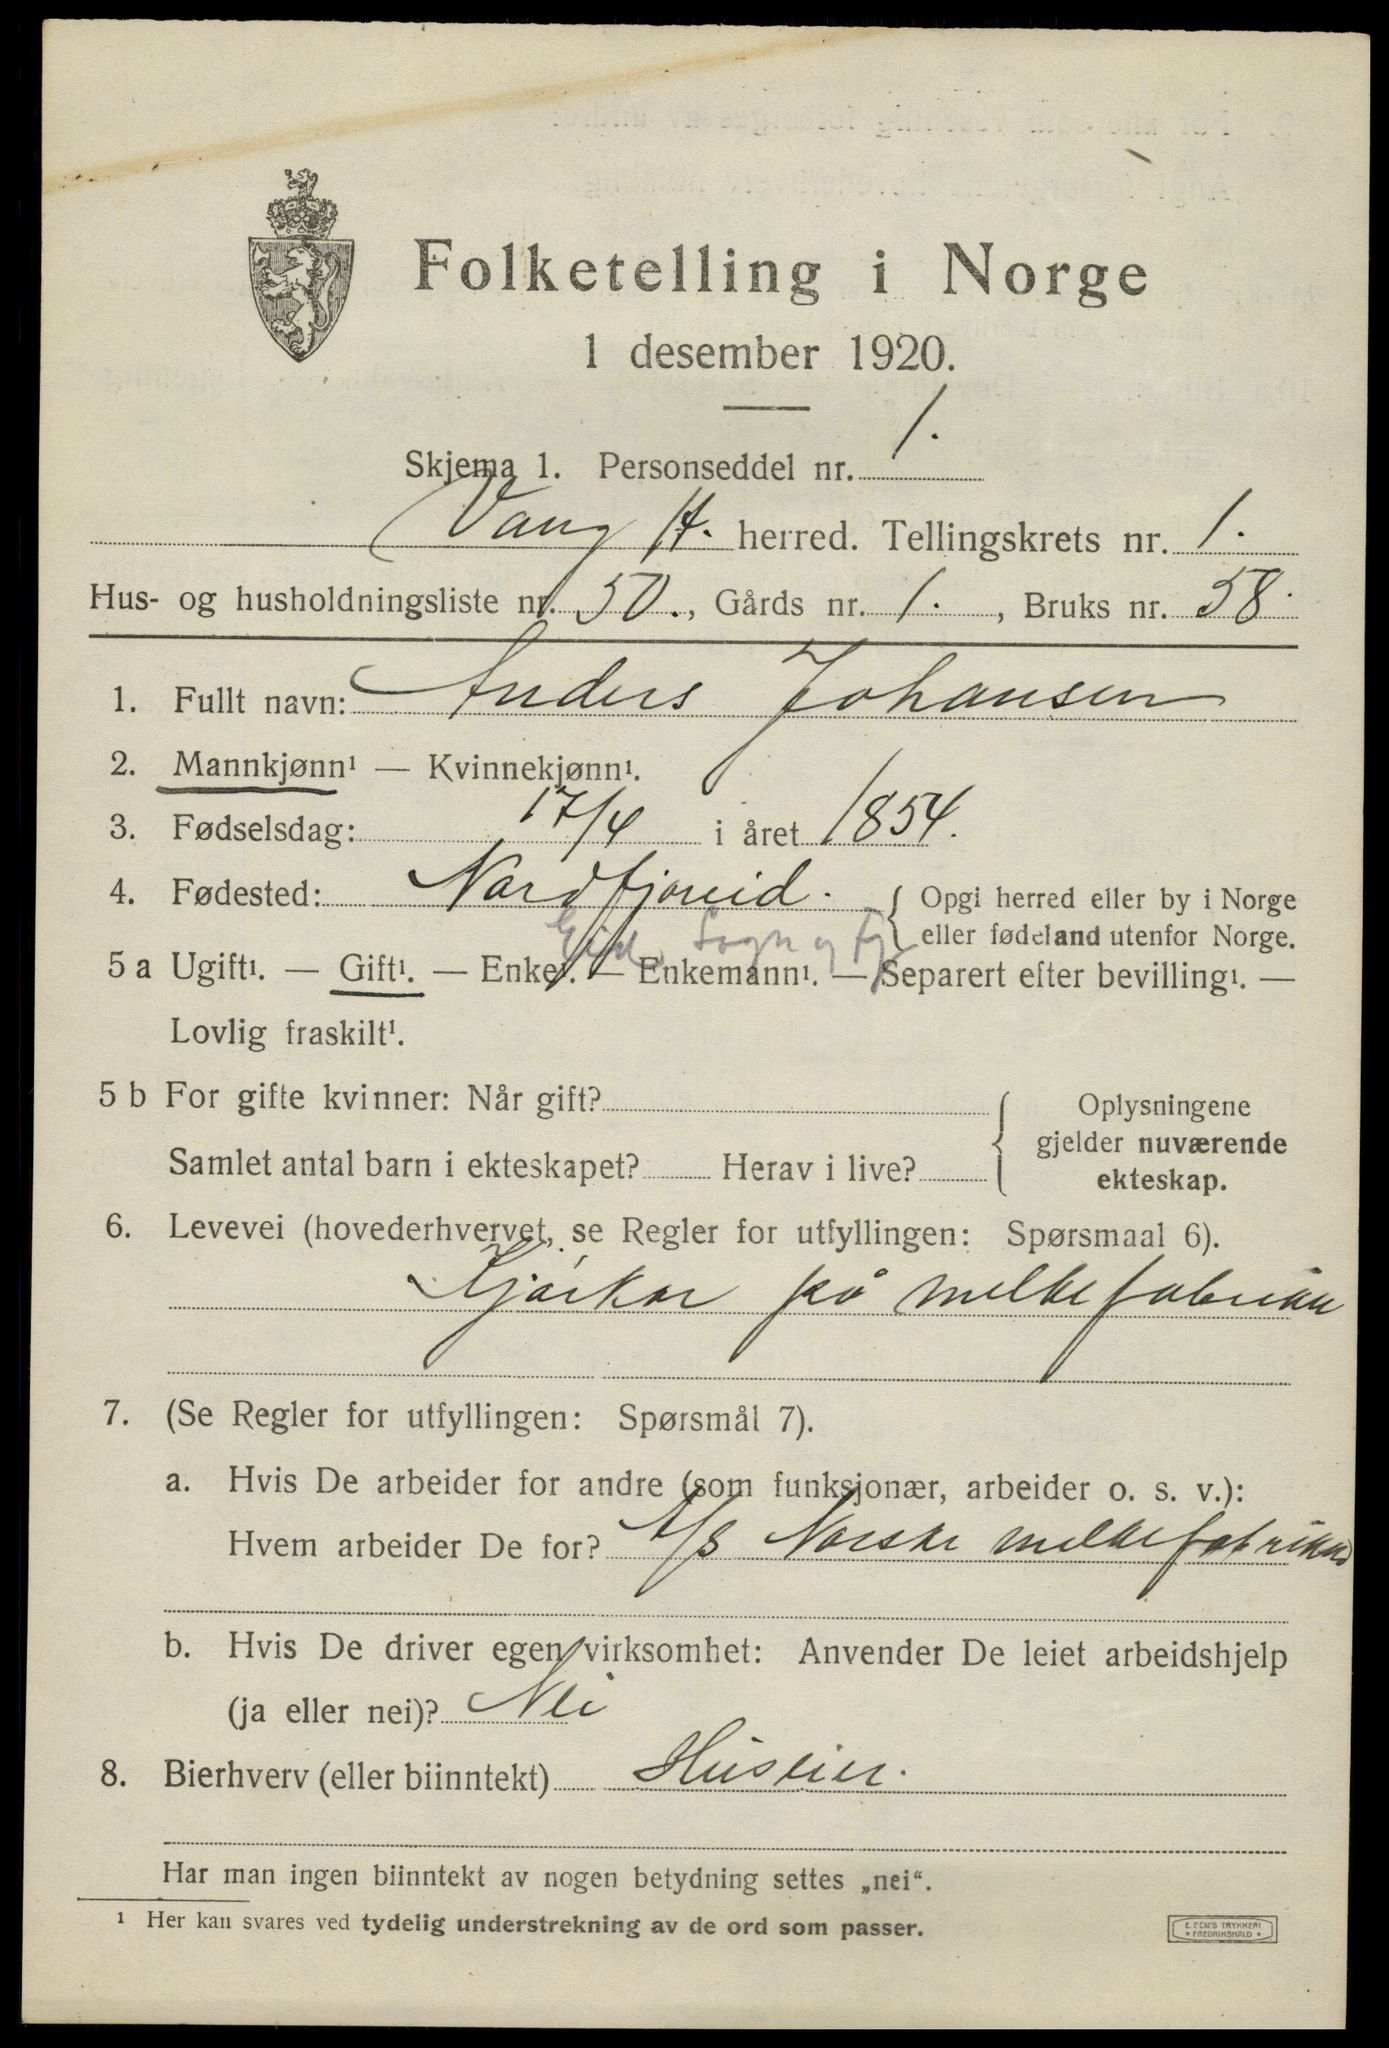 Folketelling i Norge
1 desember 1920.
Skjema 1. Personseddel nr. 1.
Vang H. herred. Tellingskrets nr. 1.
Hus- og husholdningsliste nr. 50., Gårds nr. 1., Bruks nr. 58.
1. Fullt navn: Anders Johansen
2. Mannkjønn¹ — Kvinnekjønn¹.
3. Fødselsdag: 17/4 i året 1854.
4. Fødested: Nordfjoreid. { Opgi herred eller by i Norge
eller fødeland utenfor Norge.
Eid Sogn og Fj
5 a Ugift¹. — Gift¹. — Enke¹. — Enkemann¹. — Separert efter bevilling¹. —
Lovlig fraskilt¹.
5 b For gifte kvinner: Når gift? { Oplysningene
gjelder nuværende
Samlet antal barn i ekteskapet? Herav i live? ekteskap.
6. Levevei (hovederhvervet, se Regler for utfyllingen: Spørsmaal 6).
på melkefabrikk
7. (Se Regler for utfyllingen: Spørsmål 7).
a. Hvis De arbeider for andre (som funksjonær, arbeider o. s. v.):
Hvem arbeider De for? A/S Norske melkefabrikker
b. Hvis De driver egen virksomhet: Anvender De leiet arbeidshjelp
(ja eller nei)? Nei
8. Bierhverv (eller biinntekt) Huseier.
Har man ingen biinntekt av nogen betydning settes „nei“.
¹ Her kan svares ved tydelig understrekning av de ord som passer.
E. SEM'S TRYKKERI
* FREDRIKSHALD *